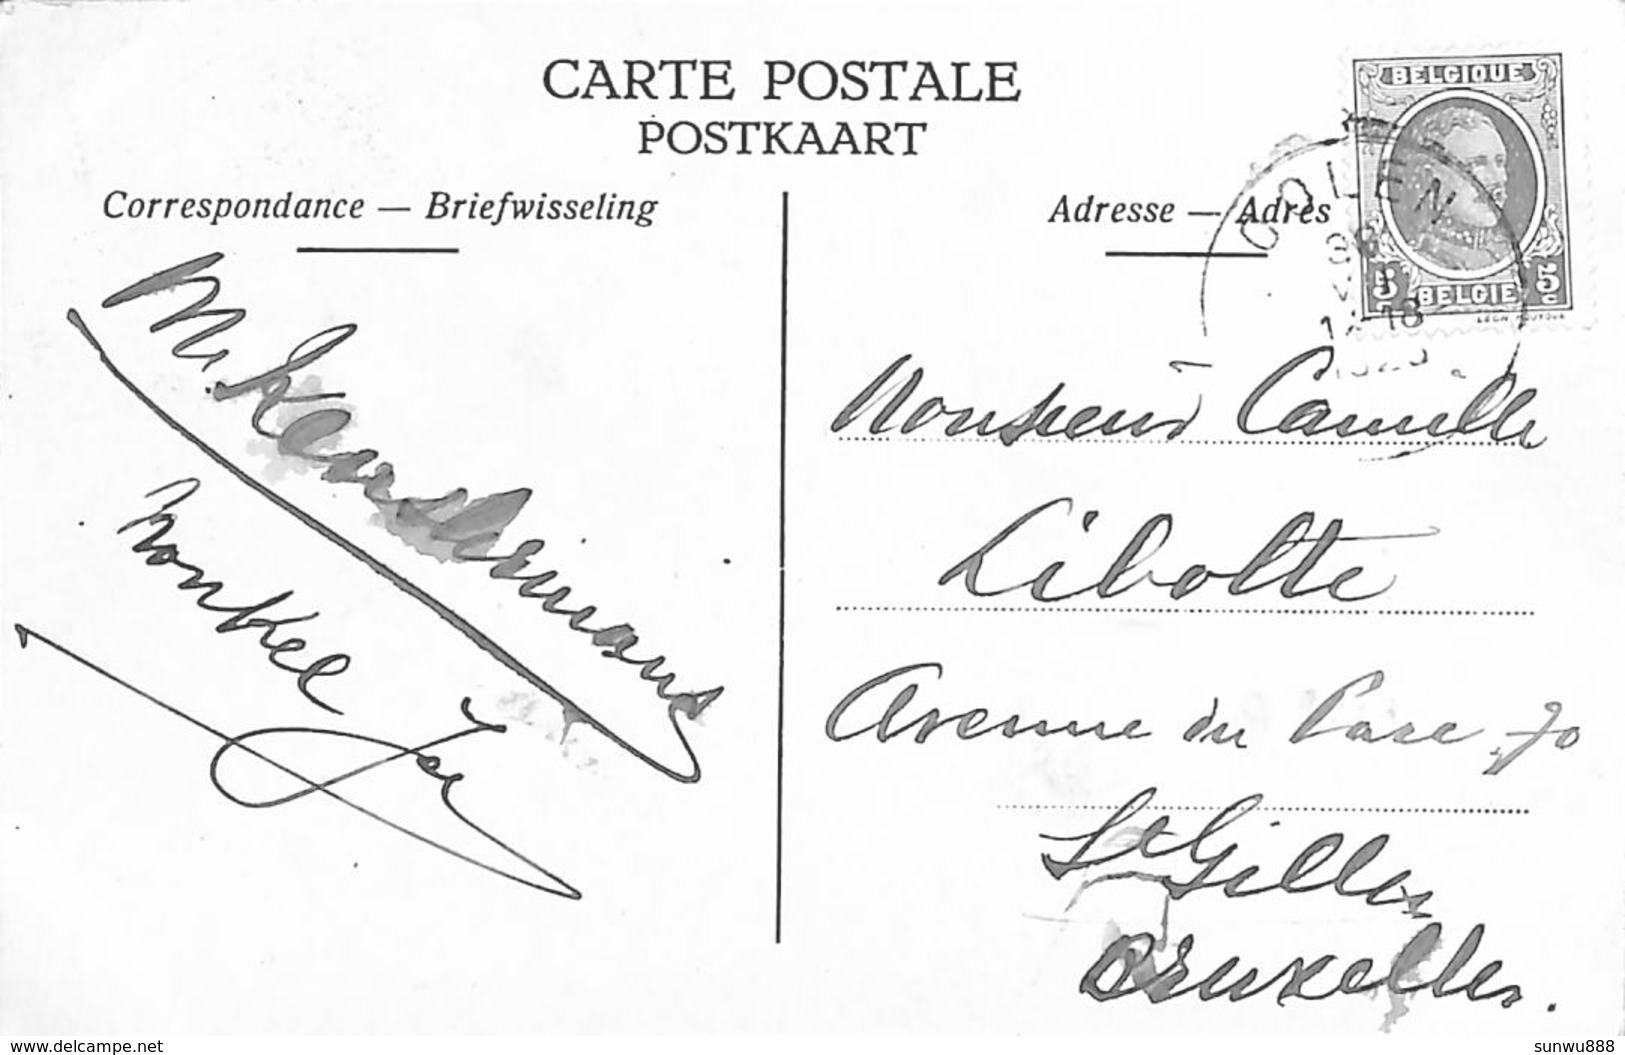 CARTE POSTALE
POSTKAART
Correspondance — Briefwisseling
Adresse — Adres
BELGIQUE
5 5
BELGIE
14-18
nonkel
Monsieur Camille
Libotte
Avenue du Parc 70
St Gilles
Bruxelles.
www.delcampe.net
sunwu888